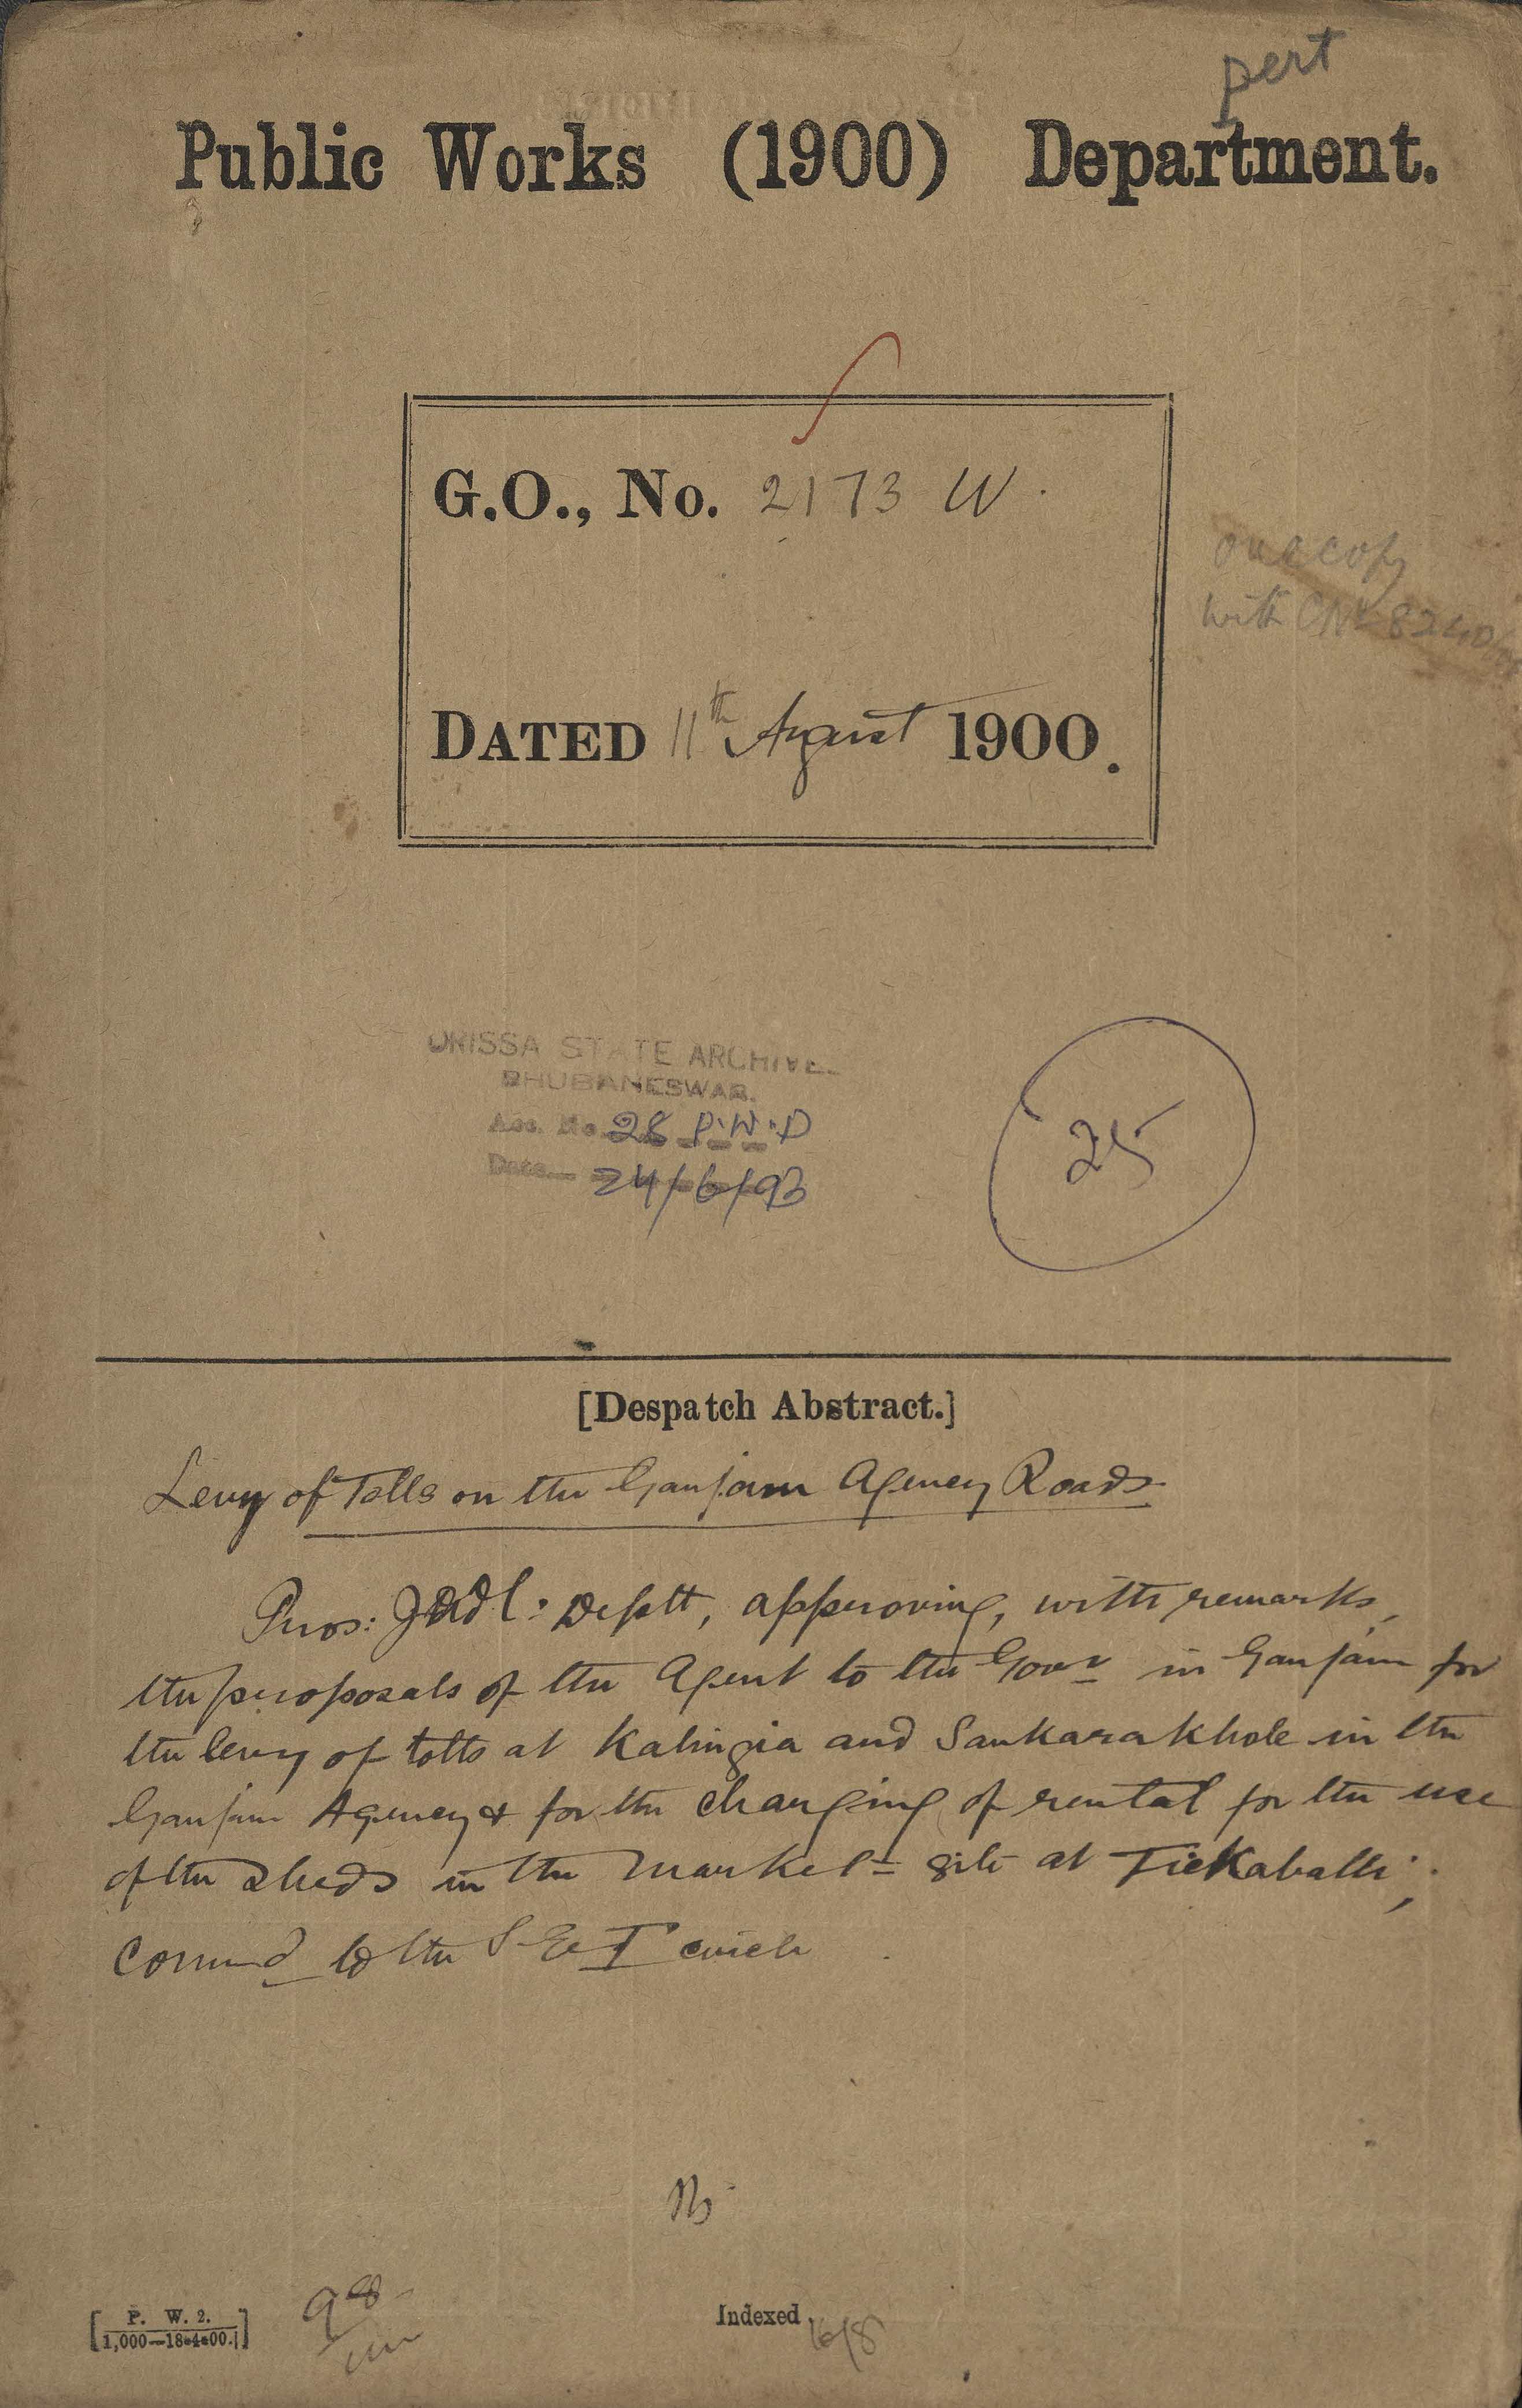 pert
Public Works (1900) Department.
G.O., No. 2173 W.
one copy
with
DATED 11th August 1900.
ORISSA STATE ARCHIVE
BHUBANESWAR.
Acc. No. 28 P.W.D
Date 24/6/93
25
[Despatch Abstract.]
Levy of Tolls on the Ganjam Agency Roads
Pros: Judl: Deptt, approving, with remarks,
the proposals of the Agent to the Govr in Ganjam for
the levy of tolls at Kalingia and Sankarakhole in the
Ganjam Agency & for the charging of rental for the use
of the sheds in the market-site at Tickaballi;
Commd to the S-E I circle
[P. W. 2.
1,000—18-4-00.]
Indexed 16/8